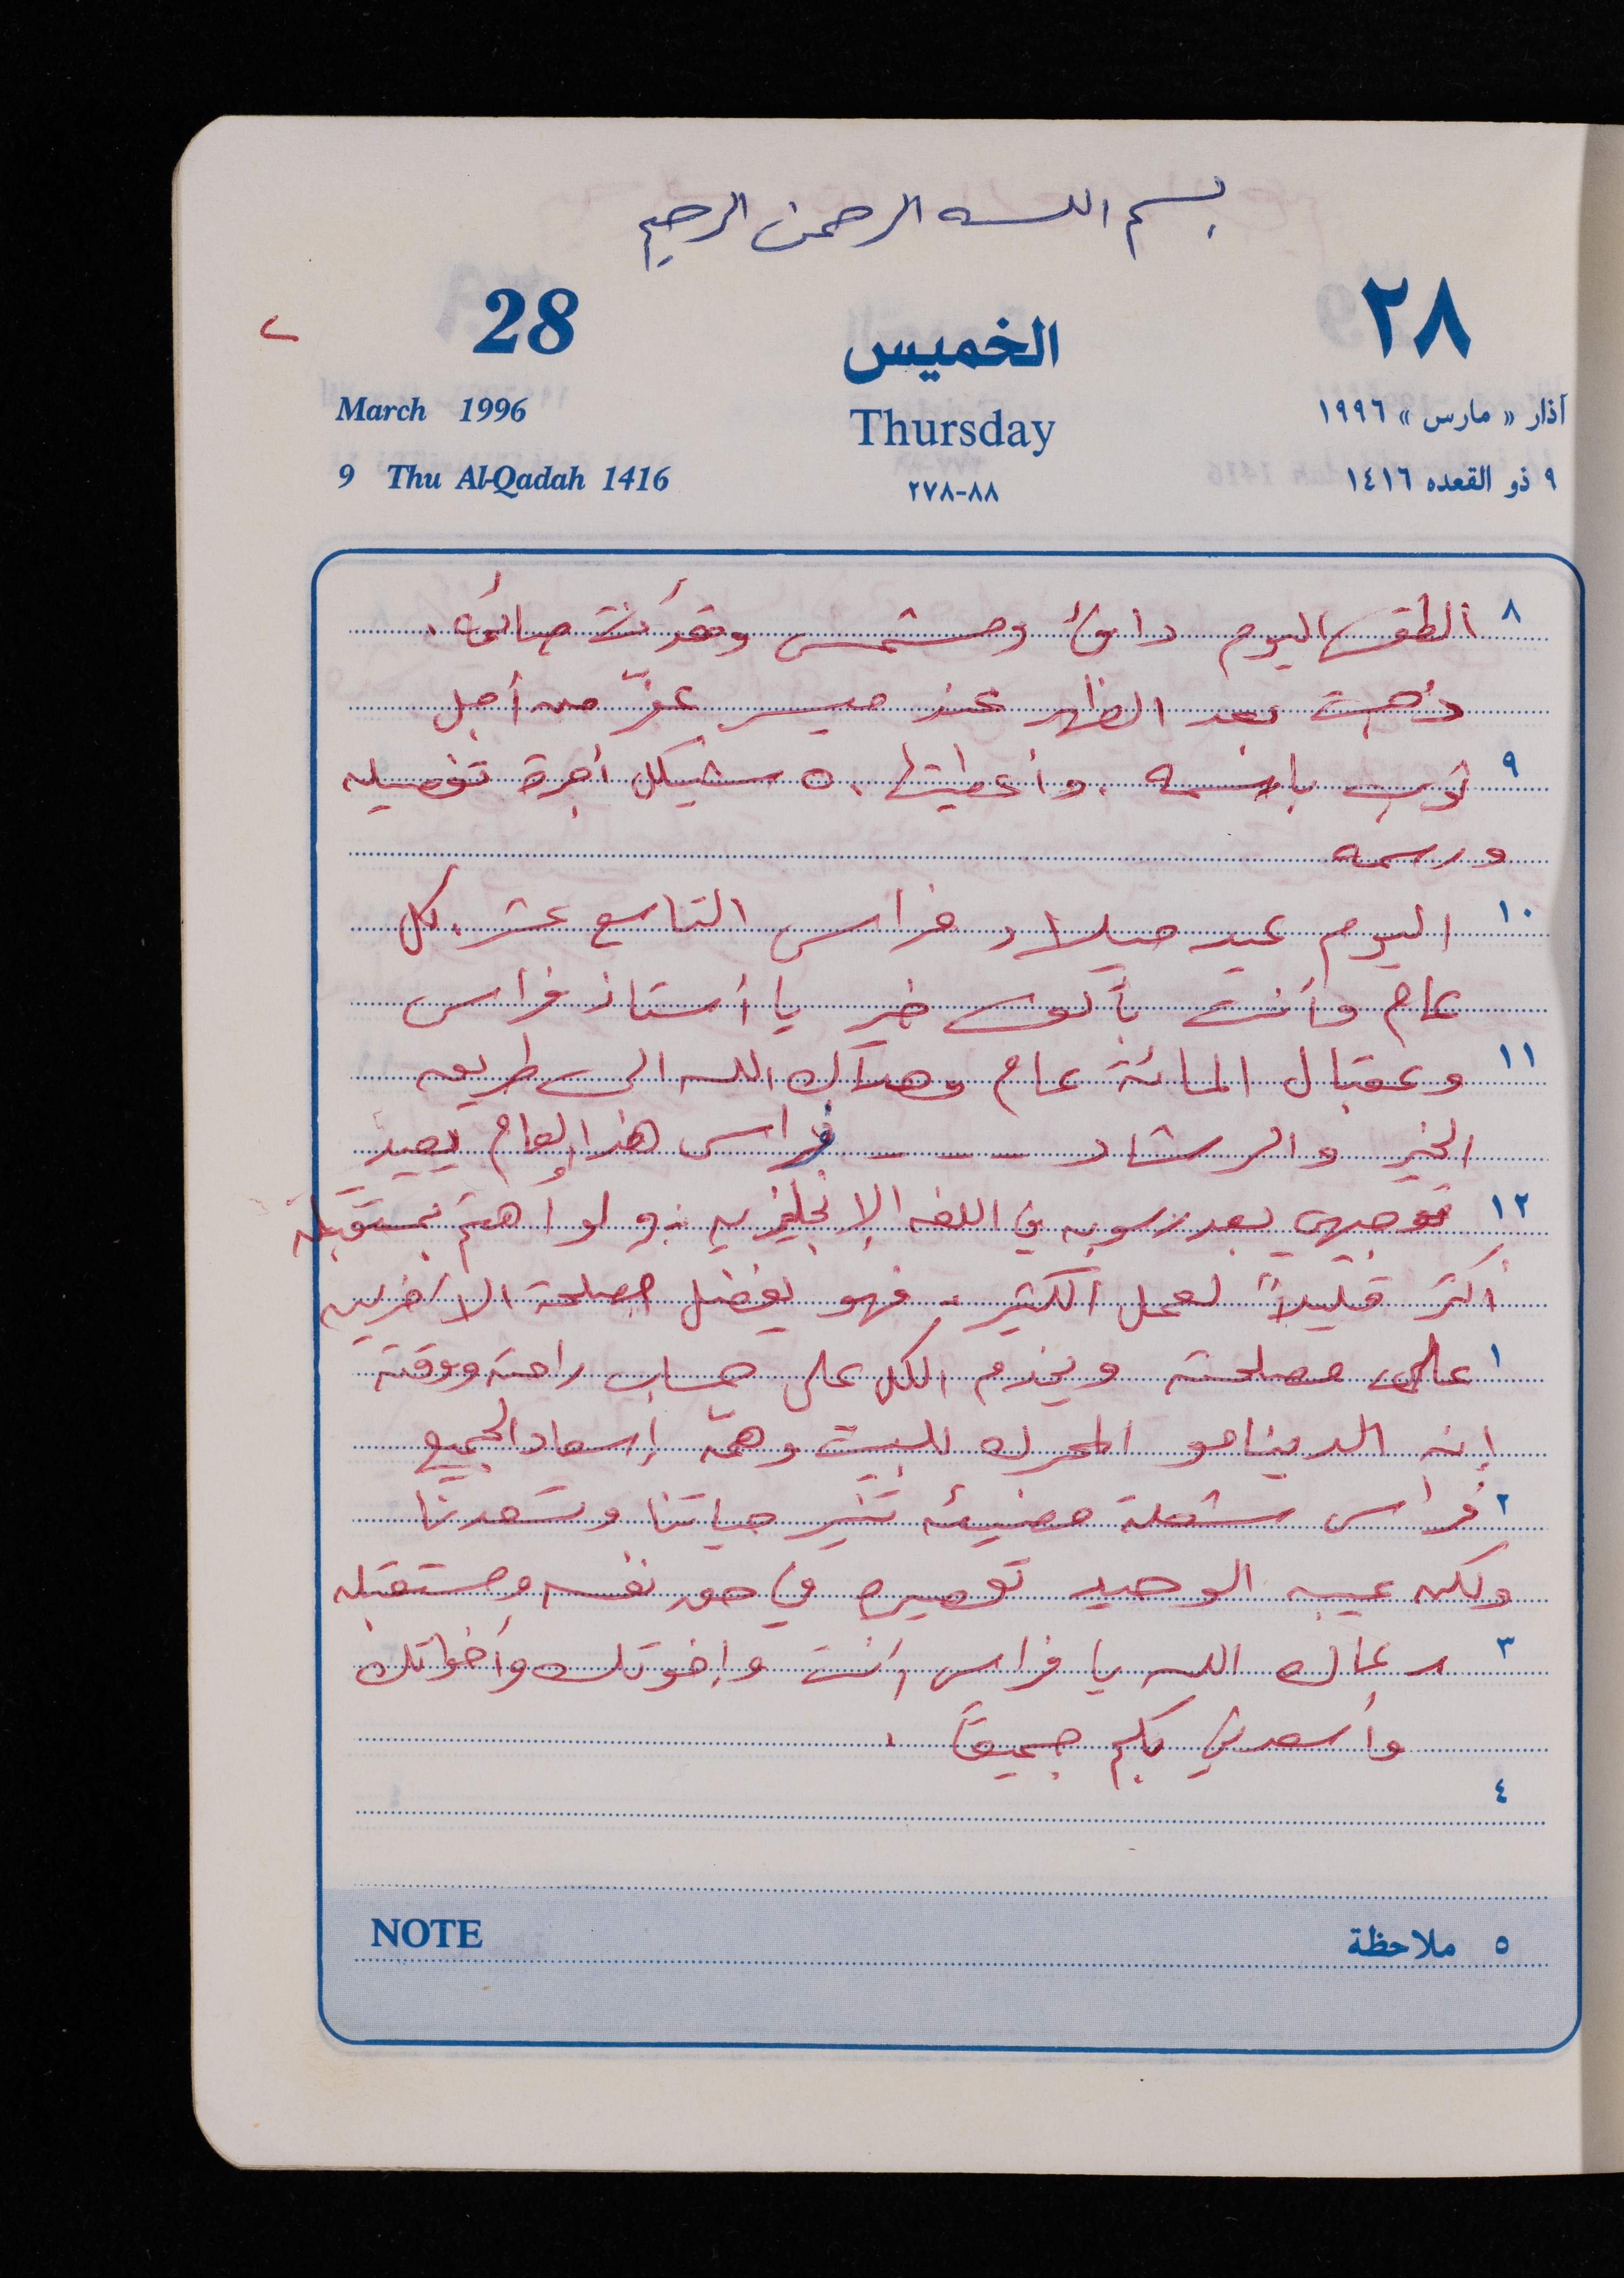 بسم الله الرحمن الرحيم
28 الخميس ٢٨
March 1996 Thursday آذار « مارس » ١٩٩٦
9 Thu Al-Qadah 1416 ٢٧٨-٨٨ ٩ ذو القعده ١٤١٦
٨ الطقس اليوم دافئ ومشمس وقد كنت صائمة.
ذهبت بعد الظهر عند ميسر عز من أجل
٩ ثوب باسمه. وأعطيتها ٥٠ شيكل أجرة تفصيله
ورسمه
١٠ اليوم عيد ميلاد فراس التاسع عشر. كل
عام وأنت بألف خير يا أستاذ فراس
١١ وعقبال المائة عام وهداك الله الى طريق
الخير والرشاد ---- فراس هذا العام يعيد
١٢ توجيهي بعد رسوبه في اللغه الإنجليزيه. ولو أهتم بمستقبله
أكثر قليلاً لعمل الكثير. فهو يفضل مصلحة الآخرين
١ على مصلحته ويخدم الكل على حساب راحته ووقته
إنه الدينامو المحرك للبيت وهمّه إسعاد الجميع
٢ فراس شعلة مضيئه تنير حياتنا وتسعدنا
ولكن عيبه الوحيد تقصيره في حق نفسه ومستقبله
٣ رعاك الله يا فراس أنت وإخوتك وأخواتك
وأسعدني بكم جميعاً.
٤
NOTE ٥ ملاحظة